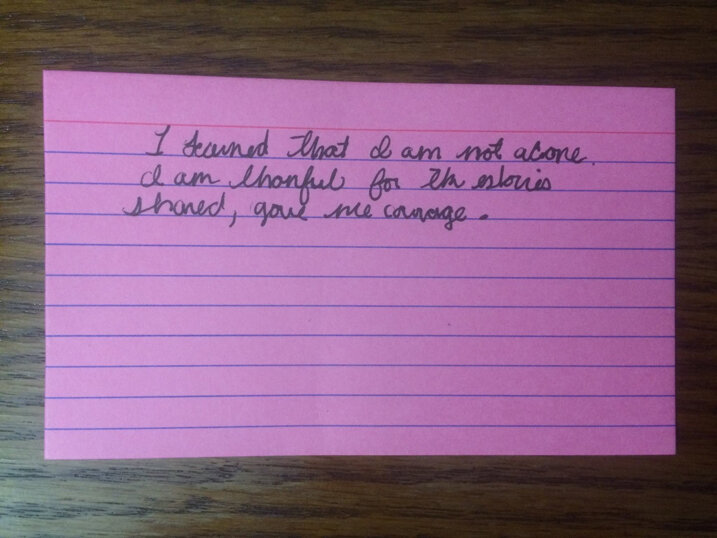 I learned that I am not alone.
I am thankful for the stories
shared, gave me courage.